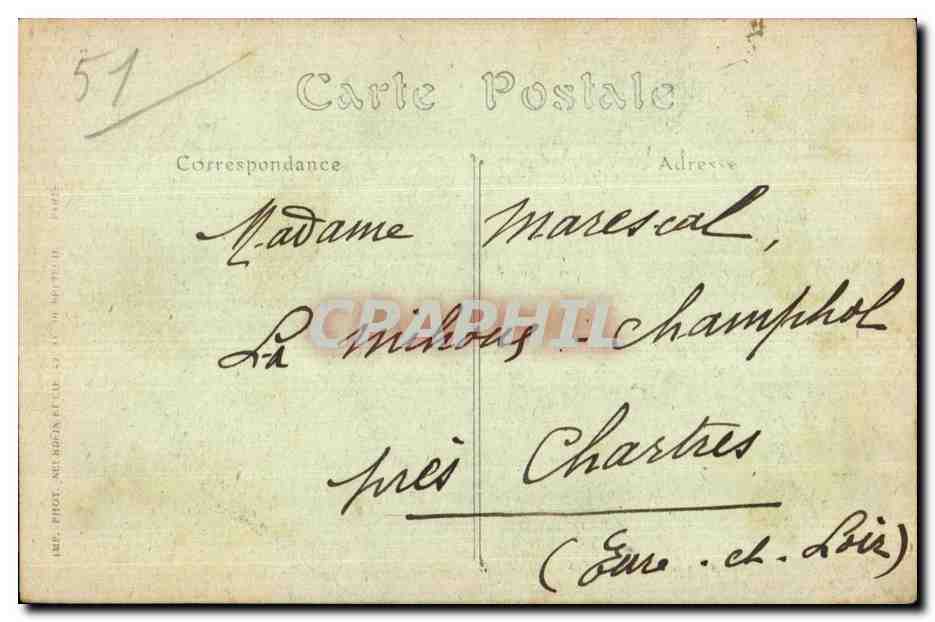 51
Carte Postale
Correspondance
Adresse
Madame Marescal,
CRAPHIL
La - champhol
près Chartres
(Eure-et-Loir)
IMP. PHOT. NEURDEIN ET CIE. PARIS